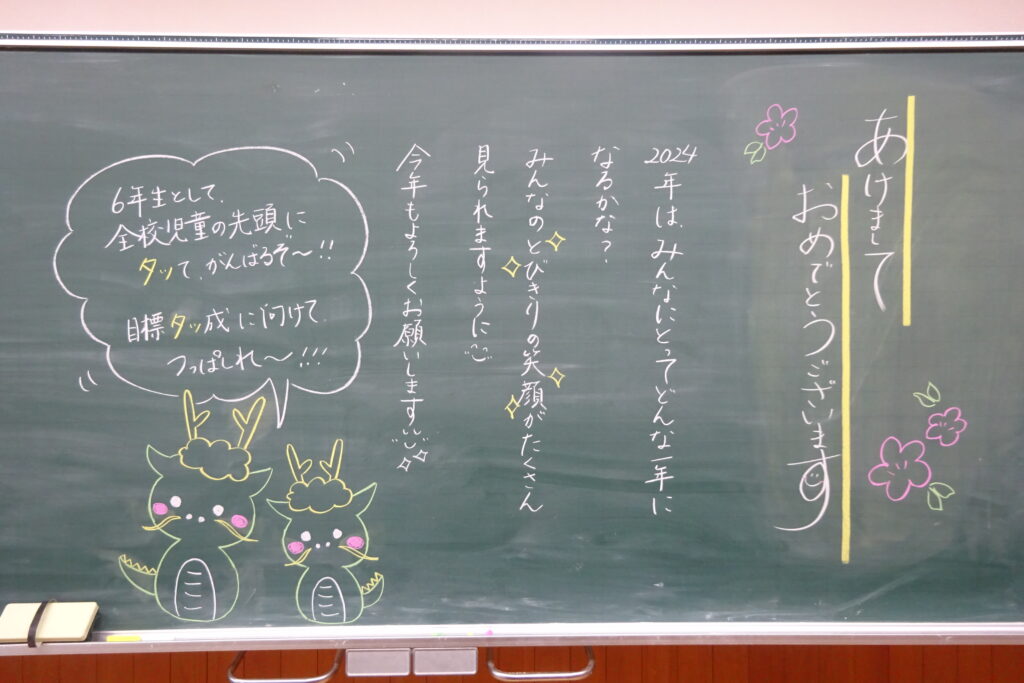 あけまして
おめでとうございます
2024年は、みんなにとってどんな一年に
なるかな？
みんなのとびきりの笑顔がたくさん
見られますように
今年もよろしくお願いします
6年生として、
全校児童の先頭に
タッて、がんばるぞ〜!!
目標タッ成に向けて
つっぱしれ〜!!!